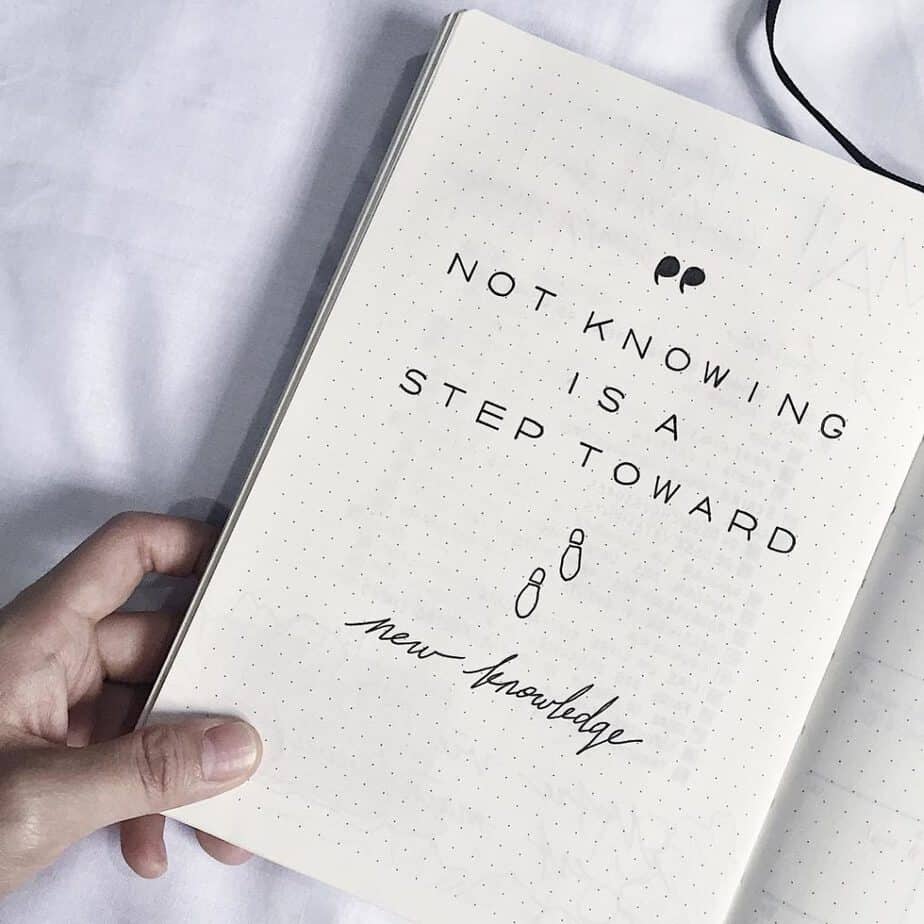 NOT KNOWING
IS A
STEP TOWARD
new knowledge